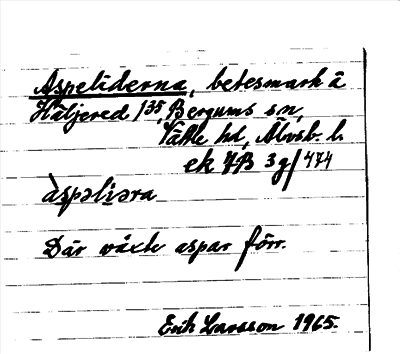 Aspeliderna, betesmark å
Häljered 1³⁵, Bergums sn,
Vättle hd, Älvsb. l.
ek 7B 3g/474
àspəliəra
Där växte aspar förr.
Erik Larsson 1965.